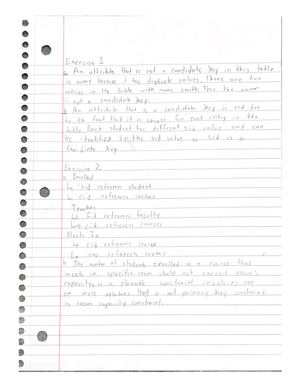 Exercise 1
a. An attribute that is not a candidate key in this table
is name because it has duplicate values. There are two
entries in the table with name smith. Thus the name
is not a candidate key.
b. An attribute that is a candidate key is sid due
to the fact that it is unique for each entry in the
table. Each student has different sid value and can
be identified by the sid value so sid is a
candidate key
Exercise 2
a. Enrolled
↳ sid references student
↳ cid references courses
Teaches
↳ fid references faculty
↳ cid references courses
Meets In
↳ cid references course
↳ rno references rooms
b. The number of students enrolled in a course that
meets in specific room should not exceed room's
capacity, is a plausible constraint involves one
or more relations that is not primary key
is room capacity constraint.